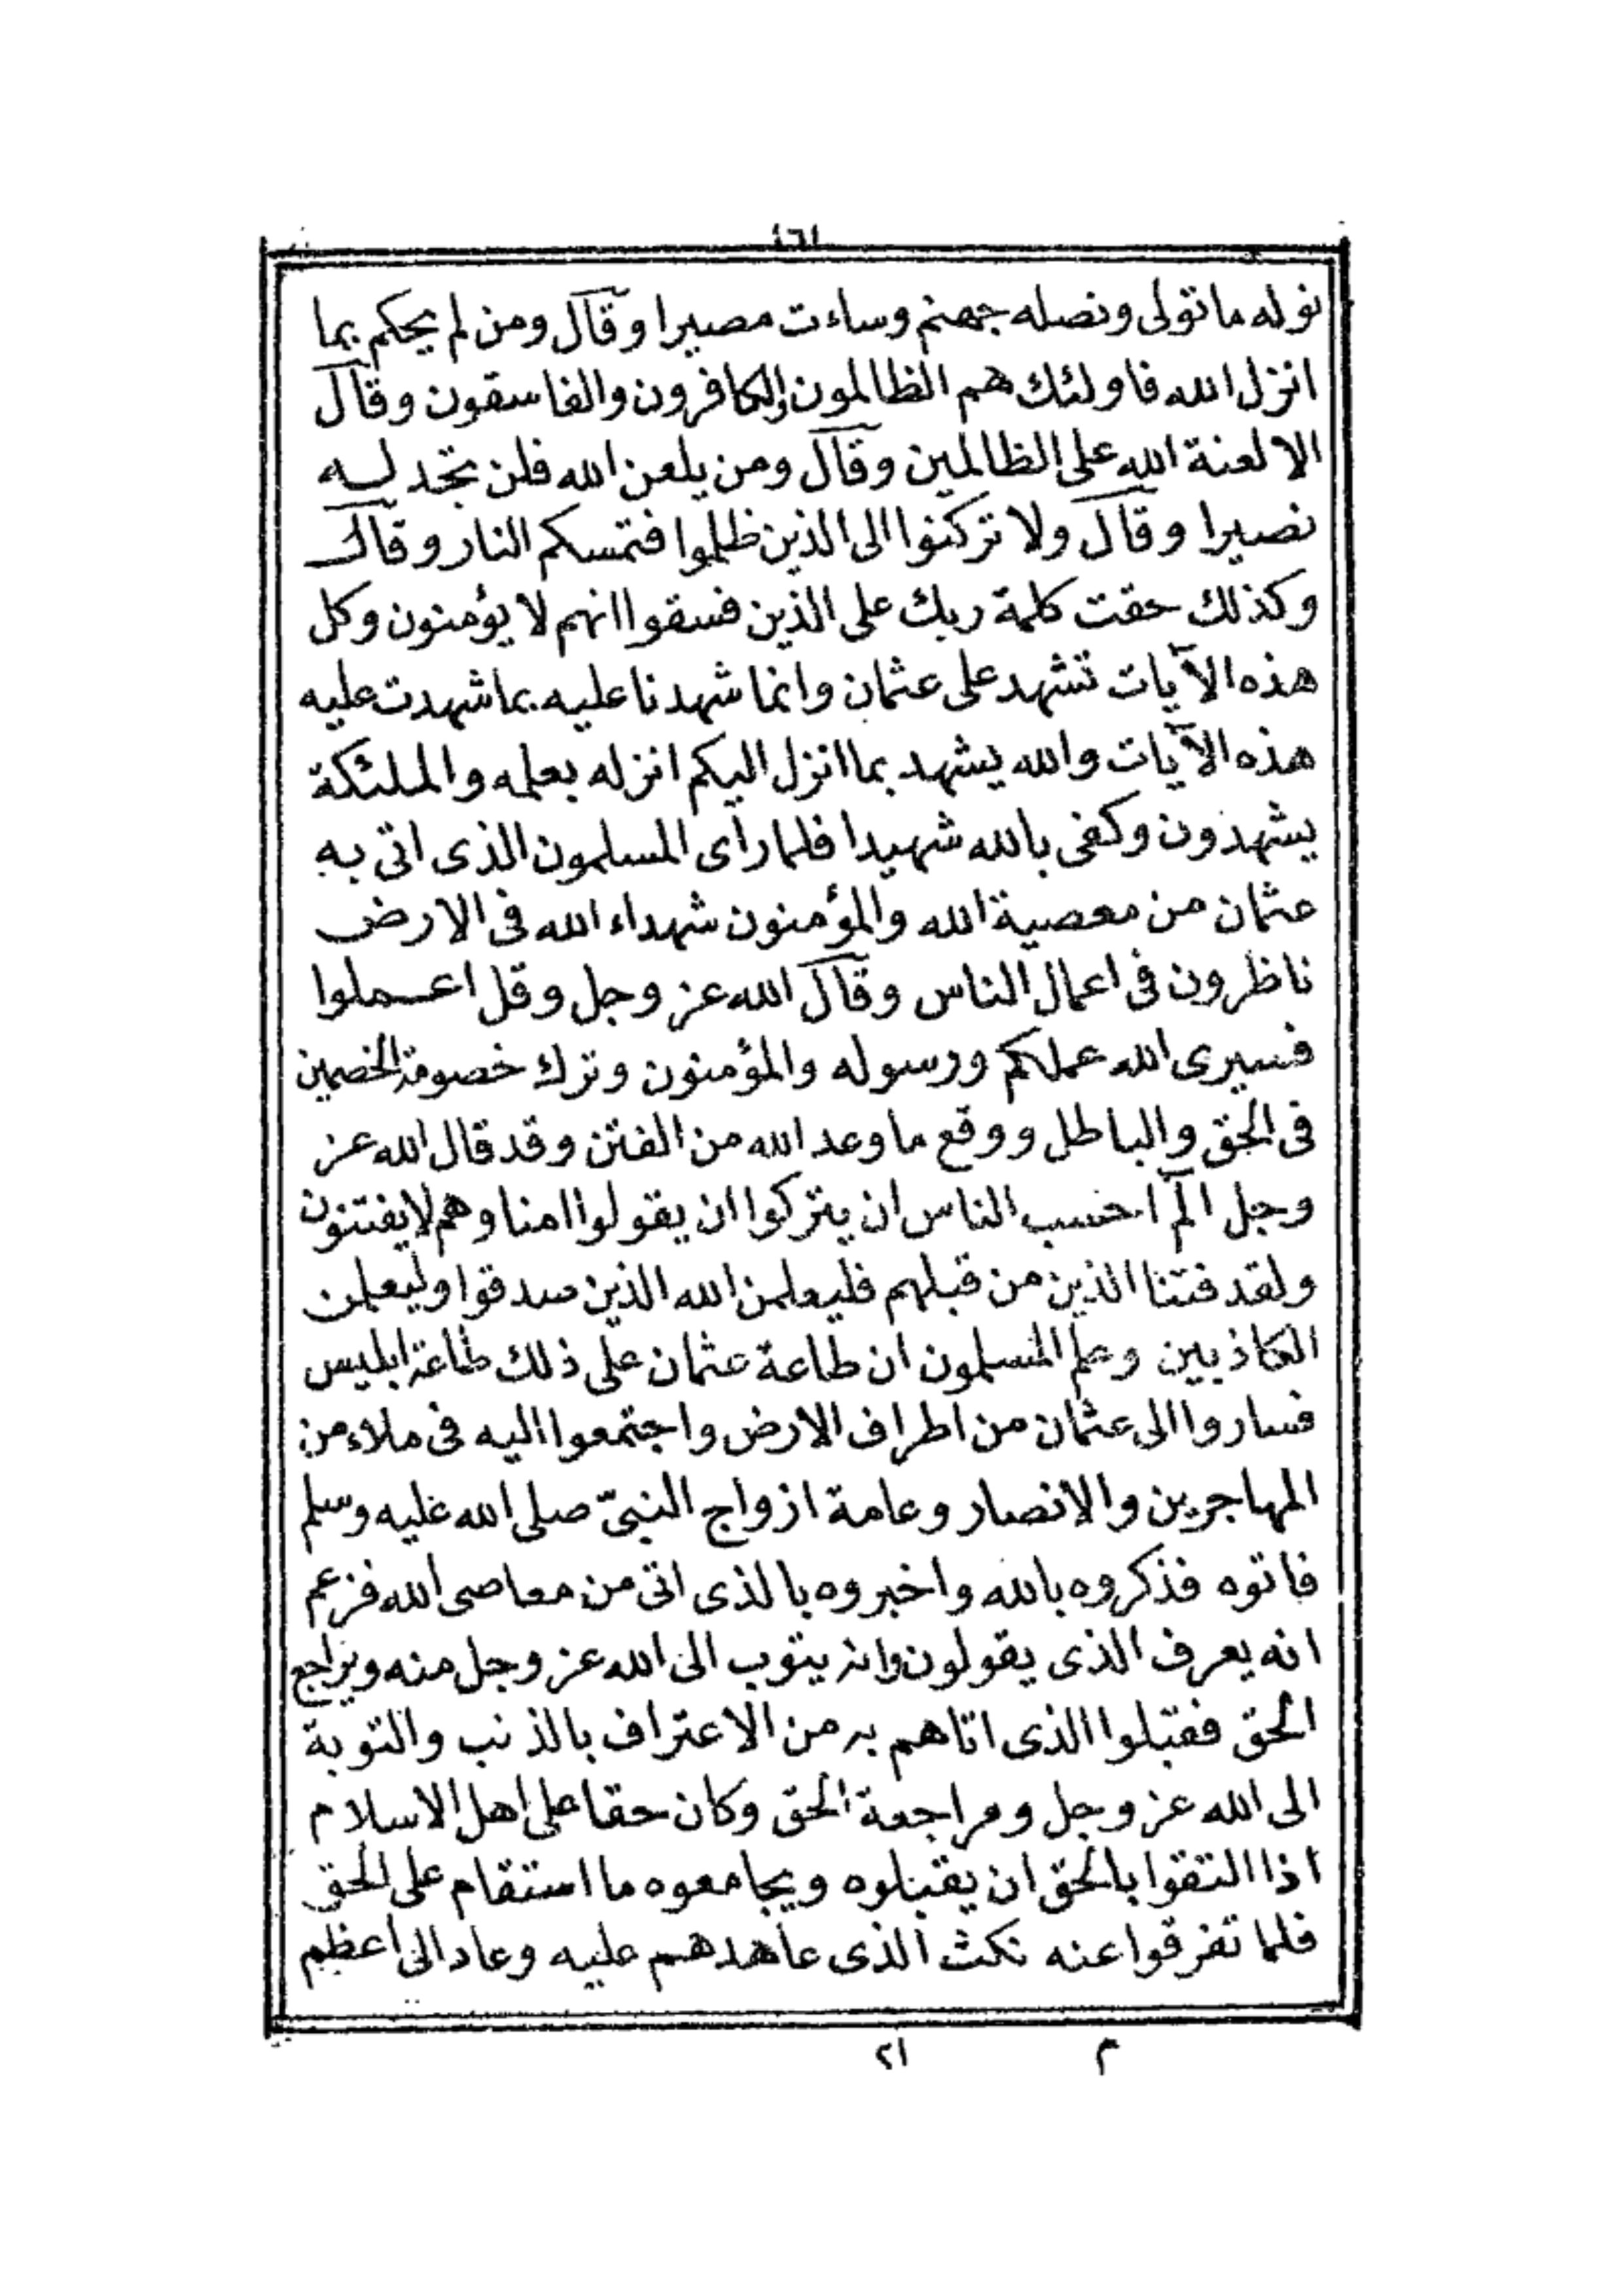 ١٦١
نوله ما تولى ونصله جهنم وساءت مصيرا وقال ومن لم يحكم بما
انزل الله فاولئك هم الظالمون والكافرون والفاسقون وقال
الا لعنة الله على الظالمين وقال ومن يلعن الله فلن تجد له
نصيرا وقال ولا تركنوا الى الذين ظلموا فتمسكم النار وقال
وكذلك حقت كلمة ربك على الذين فسقوا انهم لا يؤمنون وكل
هذه الآيات تشهد على عثمان وانما شهدنا عليه بما شهدت عليه
هذه الآيات والله يشهد بما انزل اليكم انزله بعلمه والملئكة
يشهدون وكفى بالله شهيدا فلما رأى المسلمون الذى اتى به
عثمان من معصية الله والمؤمنون شهداء الله فى الارض
ناظرون فى اعمال الناس وقال الله عز وجل وقل اعملوا
فسيرى الله عملكم ورسوله والمؤمنون وترك خصومة الخصمين
فى الحق والباطل ووقع ما وعد الله من الفتن وقد قال الله عز
وجل الٓمٓ احسب الناس ان يتركوا ان يقولوا امنا وهم لا يفتنون
ولقد فتنا الذين من قبلهم فليعلمن الله الذين صدقوا وليعلمن
الكاذبين وعلم المسلمون ان طاعة عثمان على ذلك طاعة ابليس
فساروا الى عثمان من اطراف الارض واجتمعوا اليه فى ملاء من
المهاجرين والانصار وعامة ازواج النبىّ صلى الله عليه وسلم
فاتوه فذكروه بالله واخبروه بالذى اتى من معاصى الله فزعم
انه يعرف الذى يقولون وانه يتوب الى الله عز وجل منه ويراجع
الحق فقبلوا الذى اتاهم به من الاعتراف بالذنب والتوبة
الى الله عز وجل ومراجعة الحق وكان حقا على اهل الاسلام
اذا التقوا بالحق ان يقبلوه ويجامعوه ما استقام على الحق
فلما تفرقوا عنه نكث الذى عاهدهم عليه وعاد الى اعظم
م ٢١